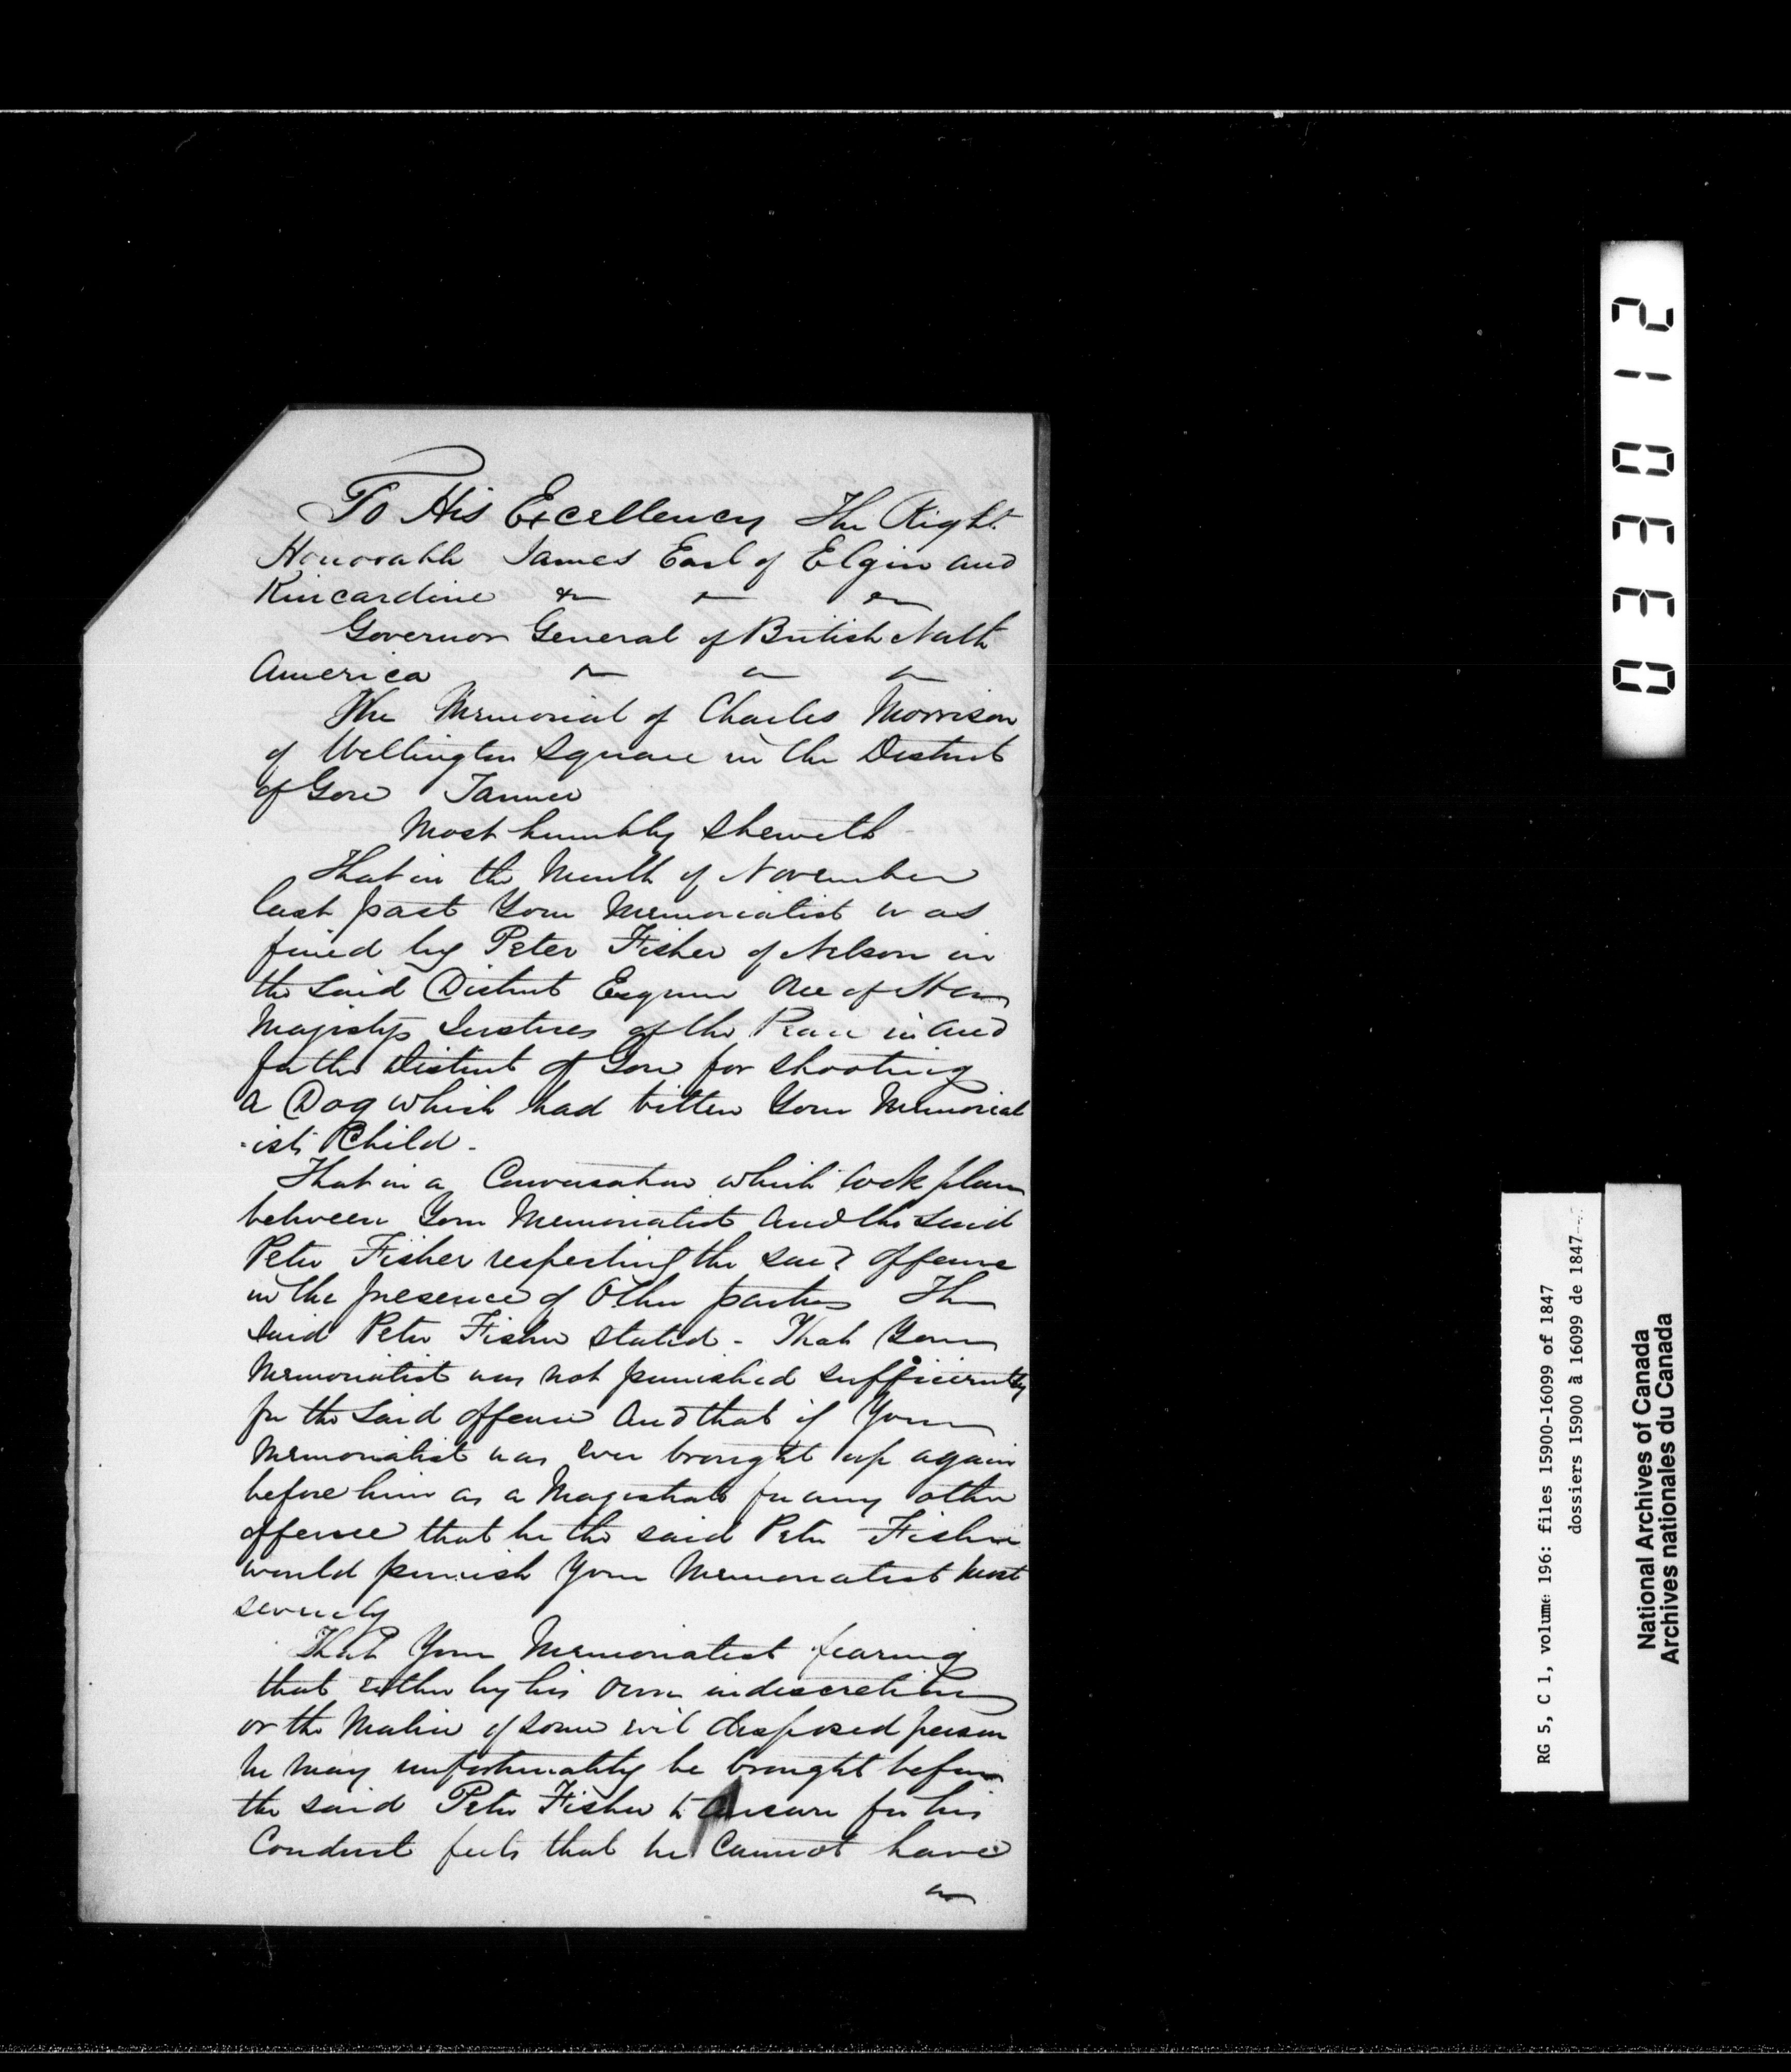 To His Excellency The Right
Honorable James Earl of Elgin and
Kincardine &c &c &c
Governor General of British North
America &c &c &c
The Memorial of Charles Morrison
of Wellington Square in the District
of Gore Tanner
Most humbly Sheweth
That in the Month of November
last past Your Memorialist was
fined by Peter Fisher of Nelson in
the said District Esquire One of Her
Majesty's Justices of the Peace in and
for the District of Gore for shooting
a Dog which had bitten Your Memorial
-ist's Child -
That in a Conversation which took place
between Your Memorialist and the said
Peter Fisher respecting the said offence
in the presence of Other parties The
said Peter Fisher stated - That Your
Memorialist was not punished sufficiently
for the said offence and that if Your
Memorialist was ever brought up again
before him as a Magistrate for any other
offence that he the said Peter Fisher
would punish Your Memorialist most
severely
That Your Memorialist fearing
that either by his own indiscretion
or the Malice of some evil disposed person
he may unfortunately be brought before
the said Peter Fisher to answer for his
Conduct feels that he cannot have
an
033012
RG 5, C 1, volume 196: files 15900-16099 of 1847
dossiers 15900 à 16099 de 1847
National Archives of Canada
Archives nationales du Canada